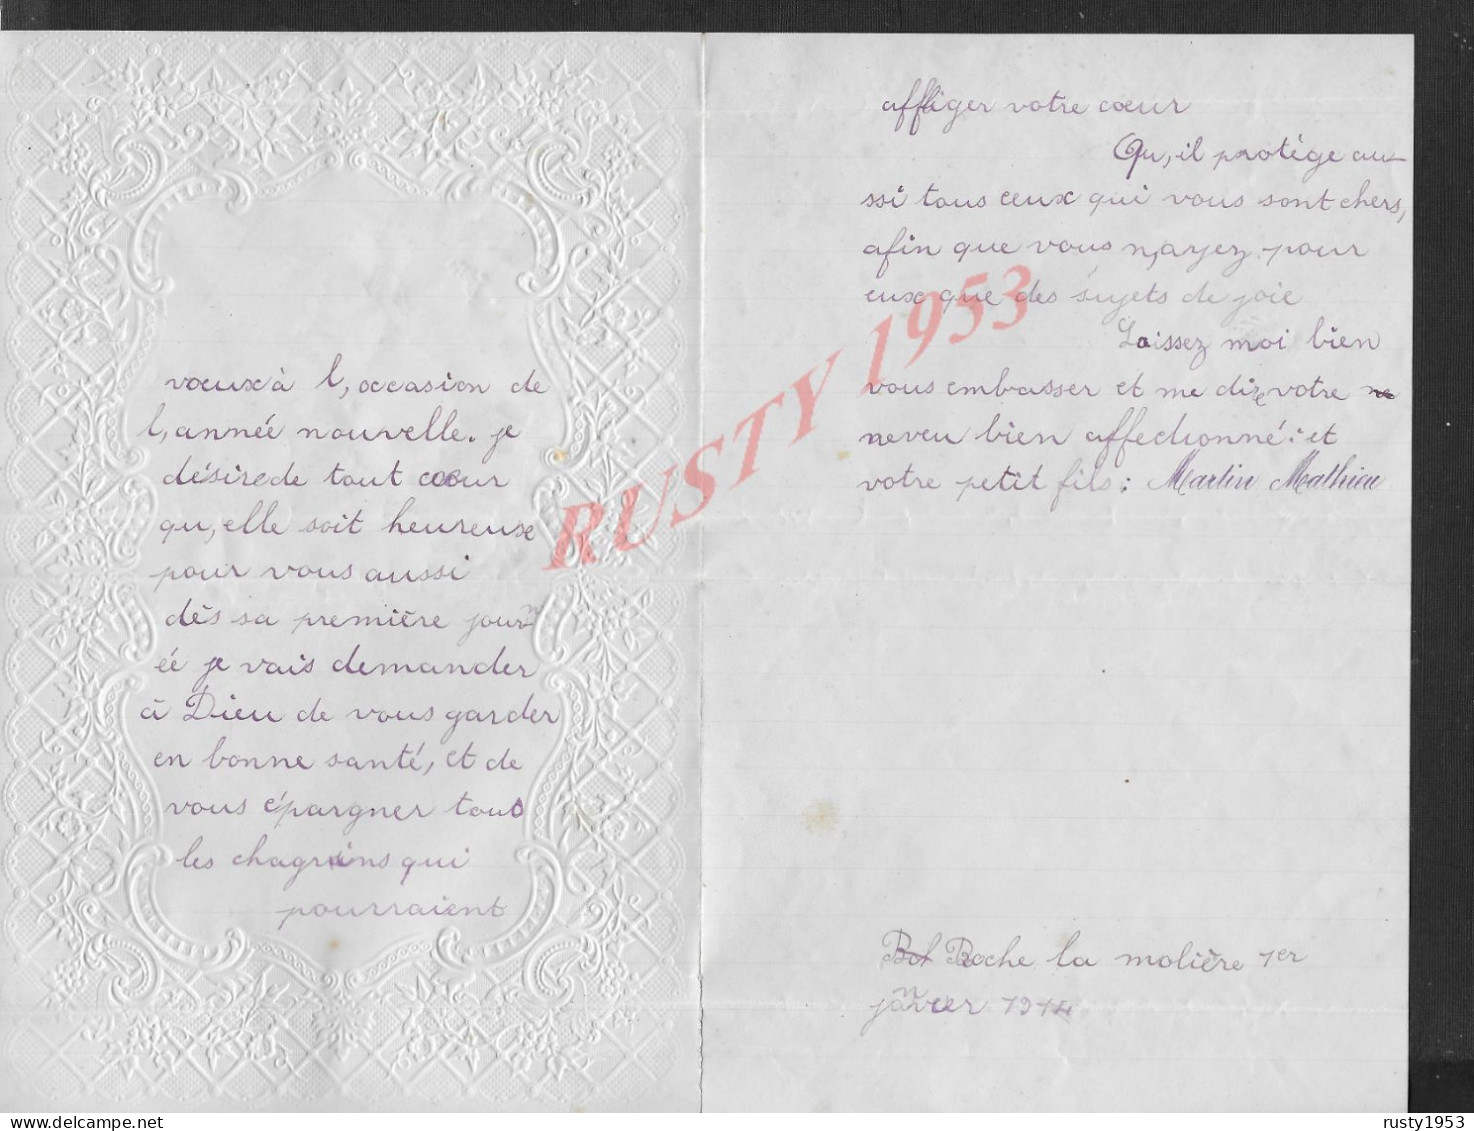 vœux à l, occasion de
l, année nouvelle. je
désire de tout cœur
qu, elle soit heureuse
pour vous aussi
dès sa première journ
ée je vais demander
à Dieu de vous garder
en bonne santé, et de
vous épargner tous
les chagrins qui
pourraient
affliger votre cœur
Qu, il protége au-
ssi tous ceux qui vous sont chers,
afin que vous n, ayez pour
eux que des sujets de joie
Laissez moi bien
vous embasser et me dire votre ne
neveu bien affectionné: et
votre petit fils: Martin Mathieu
Roche la molière 1er
janvier 1914
RUSTY 1953
delcampe.net
rusty1953